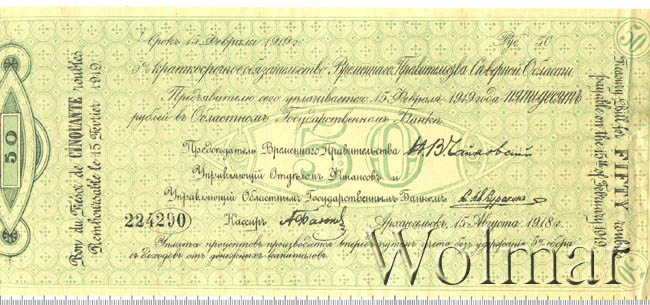 Срокъ 15 Февраля 1919 г. Руб. 50
5% краткосрочное обязательство Временнаго Правительства Сѣверной Области
Предъявителю сего уплачивается 15 Февраля 1919 года пятьдесятъ
рублей въ Областномъ Государственномъ Банкѣ.
50
Предсѣдатель Временнаго Правительства Н.В. Чайковскій
Управляющій Отдѣломъ Финансовъ и
Управляющій Областнымъ Государственнымъ Банкомъ
224290 Кассиръ Архангельскъ, 15 Августа 1918 г.
Уплата процентовъ производится впередъ
съ доходовъ отъ денежныхъ капиталовъ.
50
Bon du Trésor de CINQUANTE roubles
Remboursable le 15 Février 1919.
50
Treasury Bill for FIFTY roubles
payable on the 15th of February 1919.
50
Wolmar